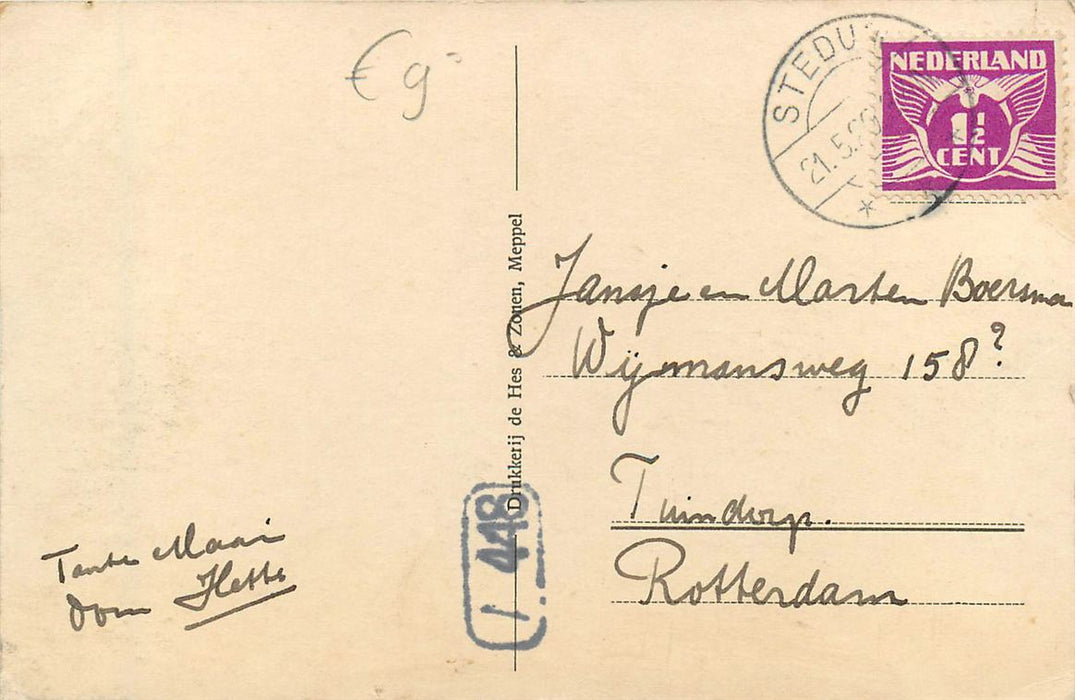 € 9-
STEDU
21.5.29
NEDERLAND
1½
CENT
Drukkerij de Hes & Zonen, Meppel
Jansje en Marten Boersma
Wijmansweg 158?
Tuindorp.
Rotterdam
1 448
Tante Maai
Oom Hette